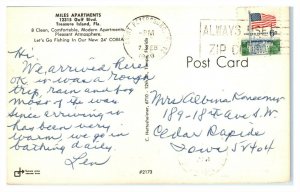 MILES APARTMENTS
13215 Gulf Blvd.
Treasure Island, Fla.
8 Clean, Comfortable, Modern Apartments.
Pleasant Atmosphere.
Let's Go Fishing In Our New 24' COBIA
PM
ALWAYS
ZIP
6¢
Post Card
Hi
We arrived here
OK it was a rough
trip rain and fog
most of the way
since arriving it
has been very
warm we go in
bathing daily
Len
Mrs Albina
189-18th Ave S W
Cedar Rapids
Iowa 52404
#2173